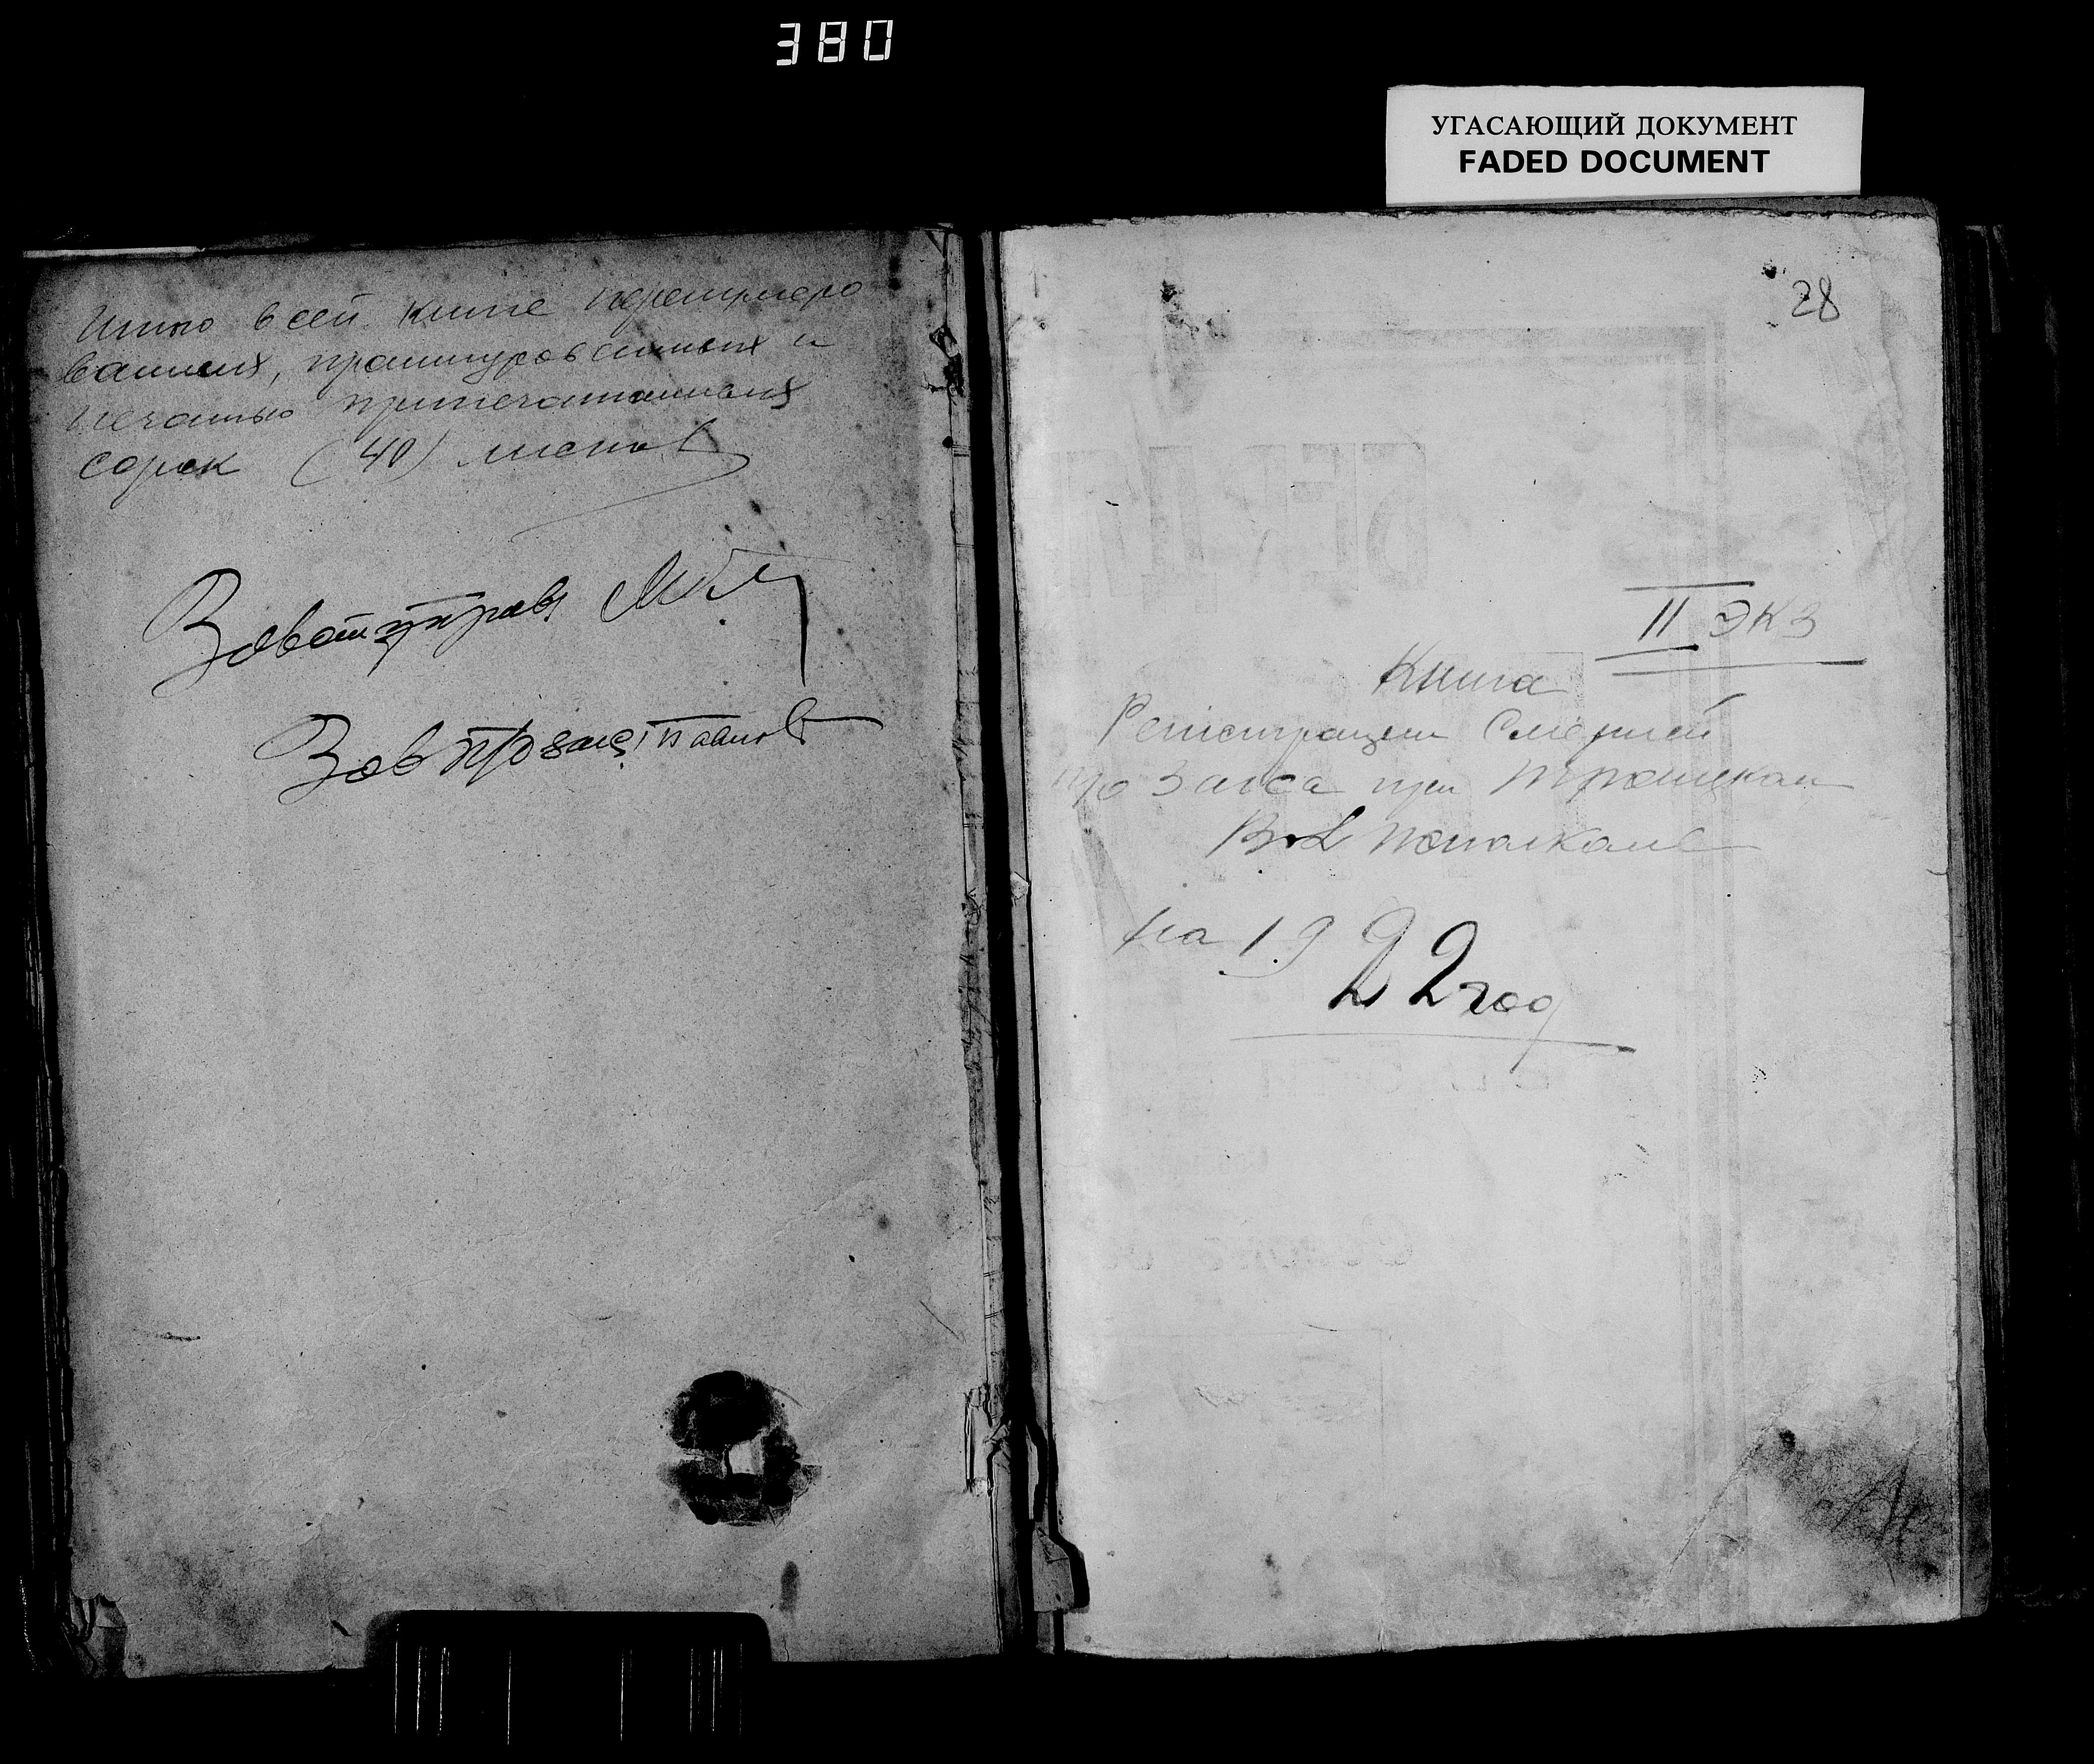 380
УГАСАЮЩИЙ ДОКУМЕНТ
FADED DOCUMENT
Итого всей книге перенумеро
ванных, прошнурованных и
печатью припечатанных
сорок (40) листов
Завотуправ
Зав п/о загс
28
II экз
Книга
Регистрации Смертей
п/о Загса при Троицком
Вол исполкоме
на 1922 год